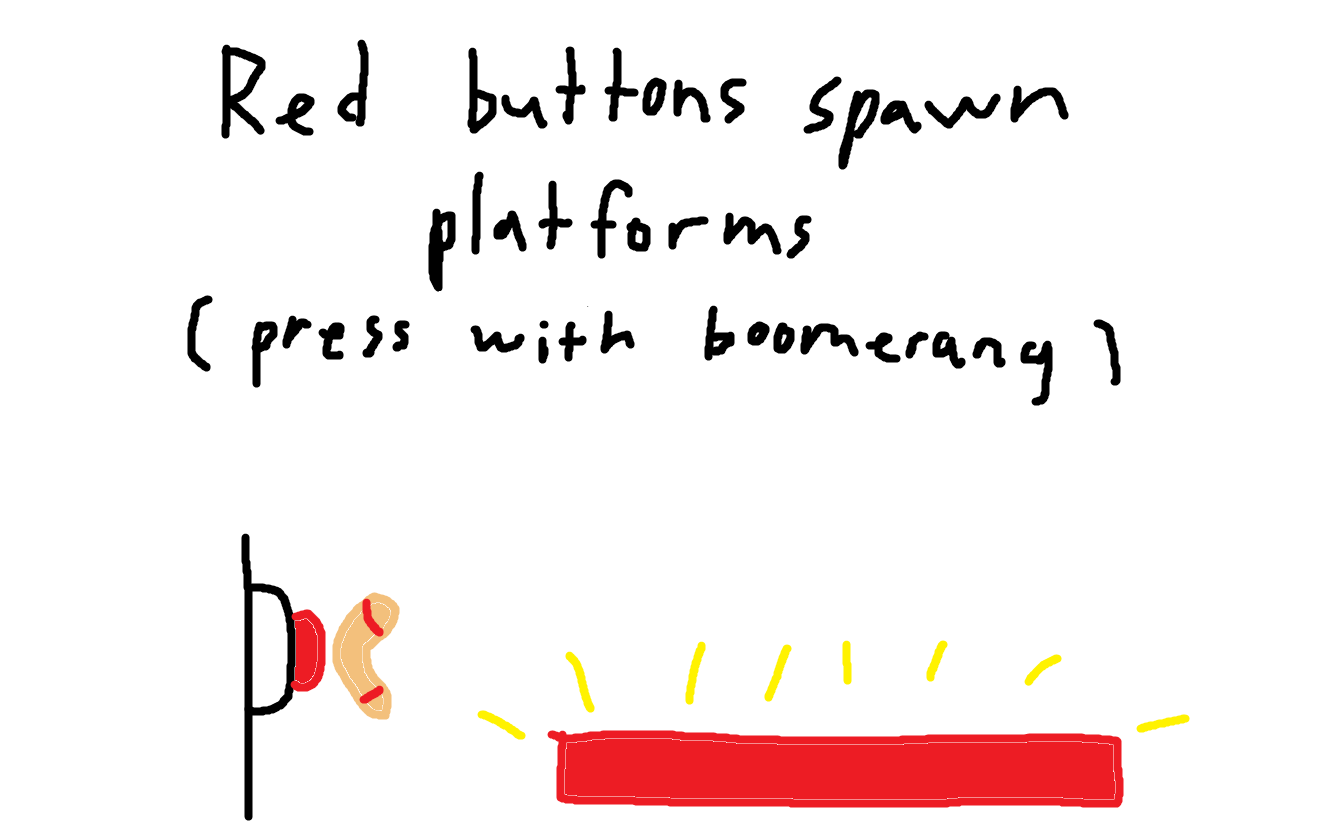 Red buttons spawn
platforms
(press with boomerang)